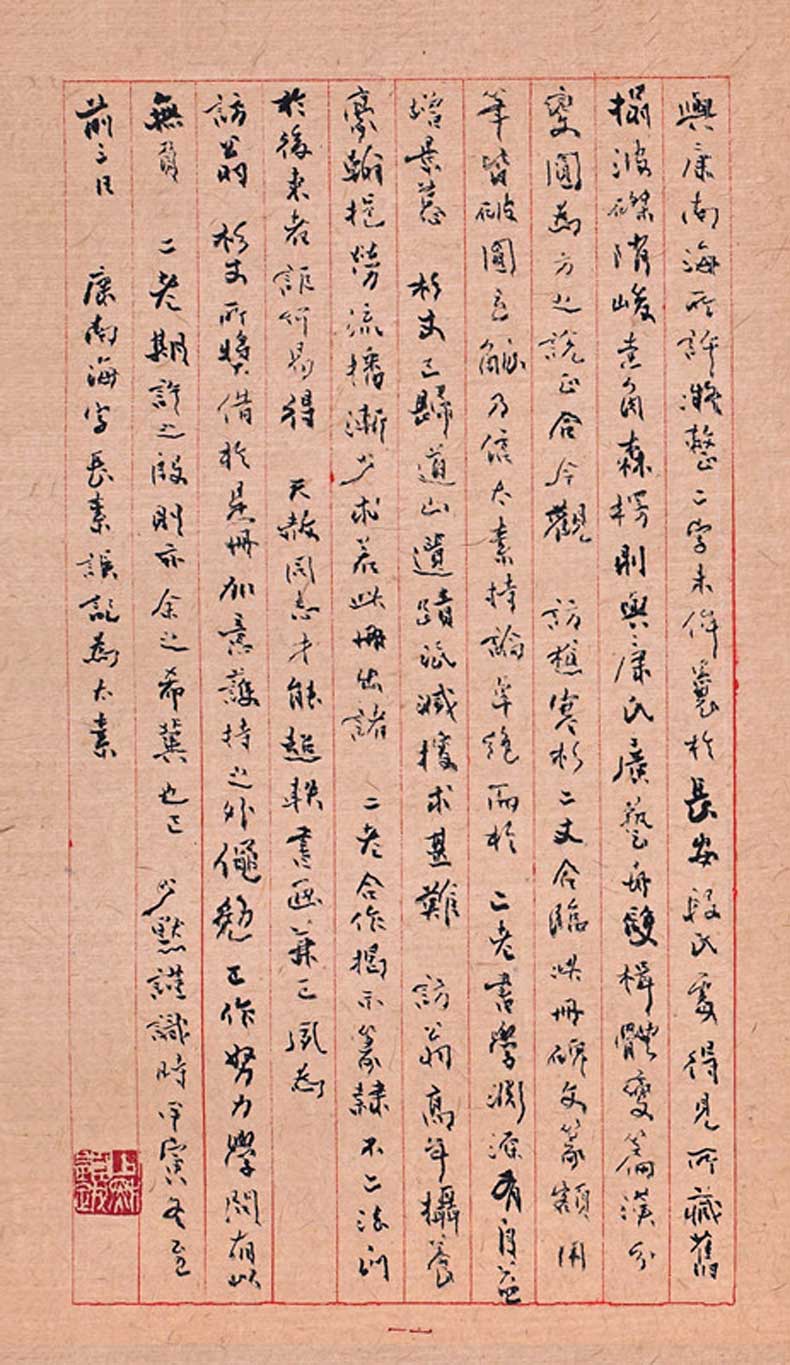 與康南海所評凝整二字未侔曩於長安段氏處得見所藏舊
搨波磔陗峻圭角森楞則與康氏廣藝舟雙楫體變篇漢分
變圓為方之說正合今觀 訪樵寒杉二丈合臨此冊碑文篆額用
筆皆破圓立觚乃信太素持論卓絶而於 二老書學淵源有自益
增景慕 杉丈已歸道山遺蹟泯滅搜求甚難 訪翁高年攝養
豪翰挹勞流播漸少求若此冊出諸 二老合作揭示篆隸不二法門
於後來者詎何易得 天赦同志才能超軼書画兼工夙為
訪翁 杉丈所奬借於是冊加意護持之外僶勉工作努力學問有以
無負 二老期許之殷則亦余之希冀也已 少默謹識時甲寅冬至
前三日 康南海字長素誤記為太素
一一